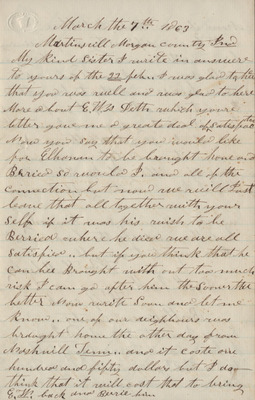 March the 7th 1863
Martinsvill Morgan county Ind
My Kind Sister I write in answer
to yours of the 22 febru I was glad to hear
that you was well and was glad to here
More about E.W.s Deth which youre
letter gave me a great deal of Satisfaction
Now you say that you would like
for Elhonan to be brought home and
Beried So would I and all of the
connection but now we will Just
leave that all together with your
Self if it was his wish to be
Berried where he died we are all
Satisfied but if you think that he
can bee Brought with out too much
risk I can go after him the Sooner the
better Now write Soon and let me
know one of our neighbours was
braught home the other day from
Nashvill Tenn and it coste one
hundred and fifty dollars but I do
think that it will cost that to bring
E.W. back and Berrie him